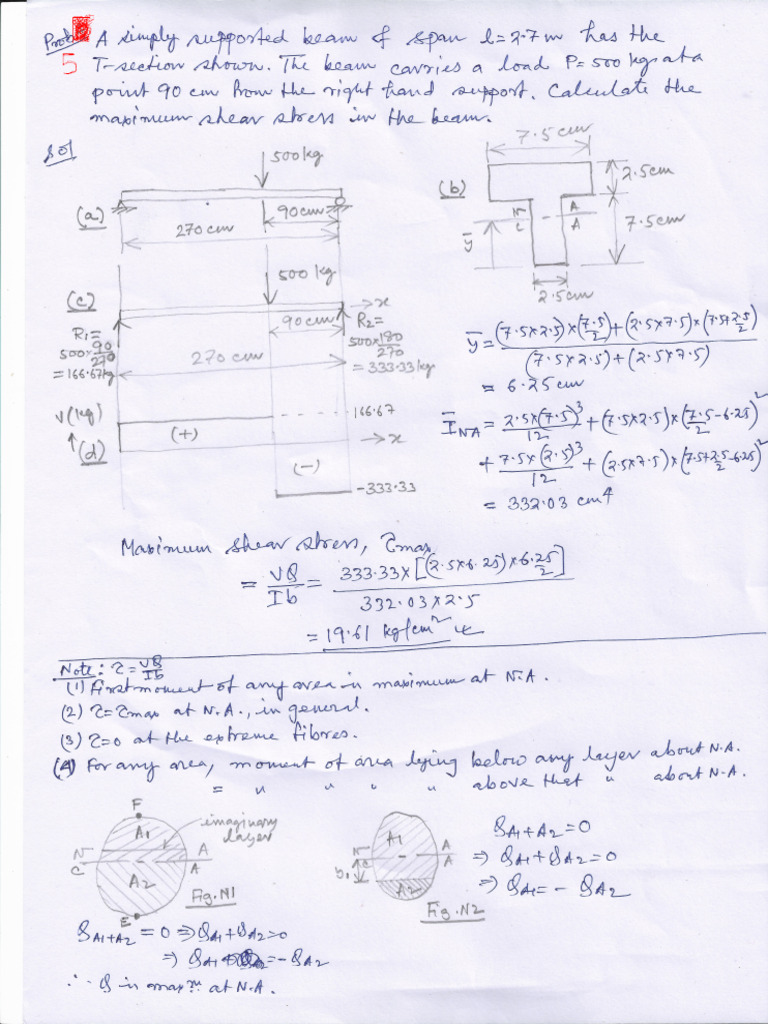 Prob
5
A simply supported beam of span l=2.7m has the
T-section shown. The beam carries a load P=500 kgs at a
point 90 cm from the right hand support. Calculate the
maximum shear stress in the beam.
Sol
500kg
(a)
90cm
270 cm
(b)
7.5cm
2.5cm
7.5cm
N
C
A
A
ȳ
2.5cm
(c)
500 kg
x
90cm
R1=
500×90/270
=166.67kg
270 cm
R2=
500×180/270
=333.33kg
V(kg)
(d)
(+)
166.67
x
(-)
-333.33
ȳ = ((7.5×2.5)×(7.5/2)+(2.5×7.5)×(7.5+2.5/2))/((7.5×2.5)+(2.5×7.5))
= 6.25cm
Ī NA = 2.5×(7.5)³/12 + (7.5×2.5)×(7.5/2-6.25)²
+ 7.5×(2.5)³/12 + (2.5×7.5)×(7.5+2.5/2-6.25)²
= 332.03 cm⁴
Maximum shear stress, τmax
= VQ/Ib = 333.33×[(2.5×6.25)×6.25/2]/(332.03×2.5)
= 19.61 kg/cm²
Note: τ=VQ/Ib
(1) First moment of any area is maximum at N.A.
(2) τ=τmax at N.A., in general.
(3) τ=0 at the extreme fibres.
(4) For any area, moment of area lying below any layer about N.A.
= " " " " above that " about N.A.
F
A1
imaginary
layer
N
C
A
A
A2
E
Fig.N1
A1
N
C
A
A
b1
A2
Fig.N2
QA1+A2=0
⇒ QA1+QA2=0
⇒ QA1=-QA2
QA1+A2=0 ⇒QA1+QA2=0
⇒ QA1=-QA2
∴ Q is max^m at N.A.